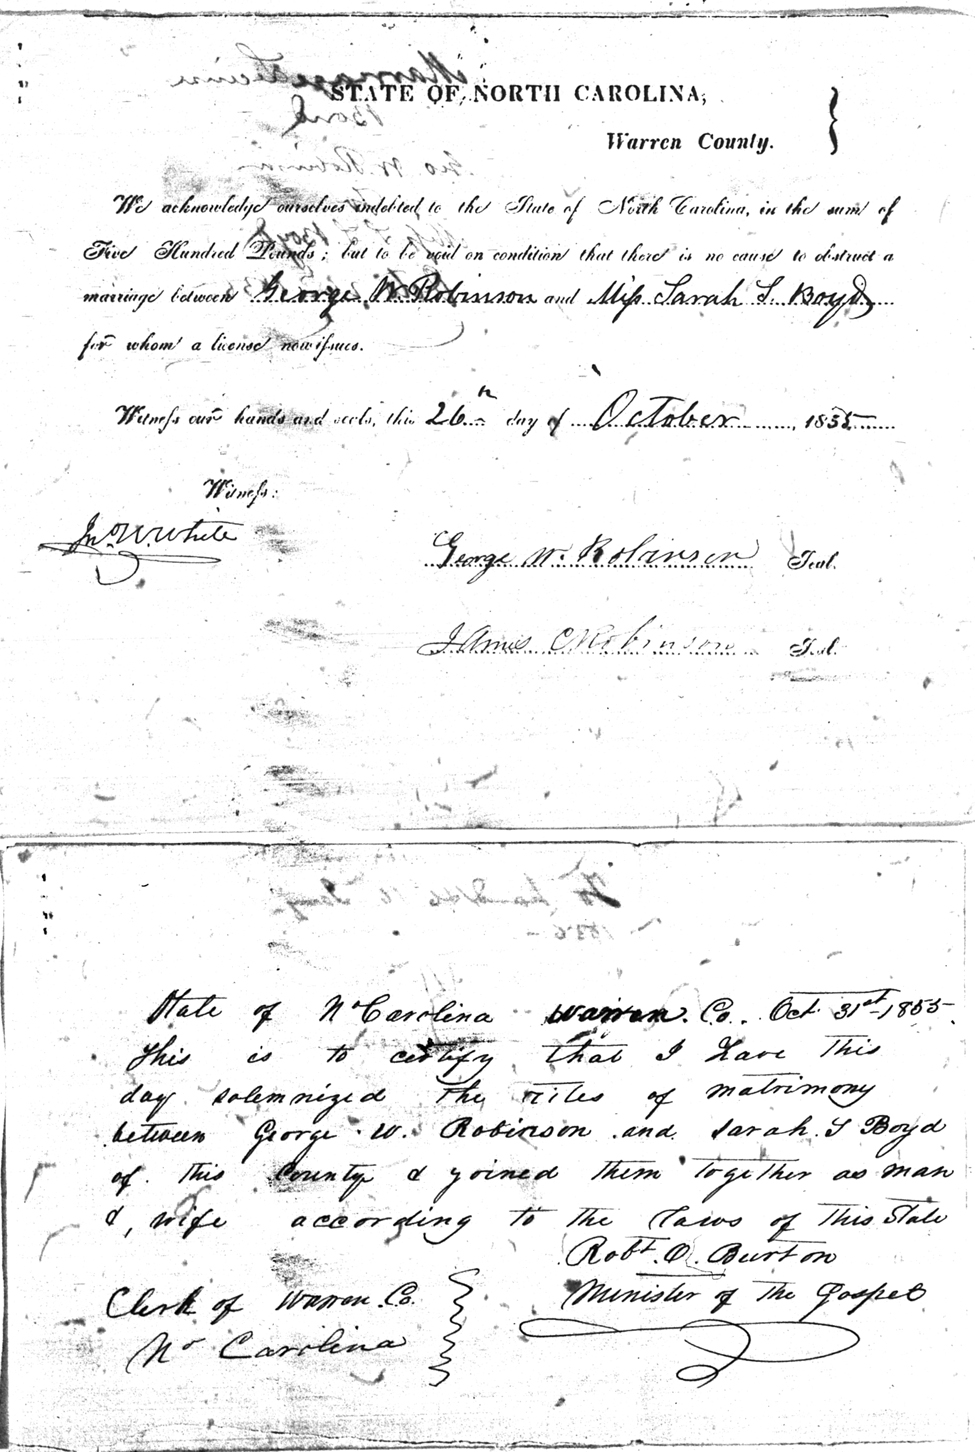 STATE OF NORTH CAROLINA,
Warren County.
We acknowledge ourselves indebted to the State of North Carolina, in the sum of
Five Hundred Pounds; but to be void on condition that there is no cause to obstruct a
marriage between George W. Robinson and Miss Sarah S. Boyd
for whom a license now issues.
Witness our hands and seals, this 26th day of October, 1855
Witness:
Jno. W. White
George W. Robinson Seal.
James C Robinson Seal.
State of No Carolina Warren. Co. Oct 31st 1855.
This is to certify that I have this
day solemnized the rites of matrimony
between George W. Robinson and Sarah S Boyd
of this County & joined them together as man
& wife according to the laws of this State
Robt. O. Burton
Minister of the Gospel
Clerk of Warren Co.
No Carolina